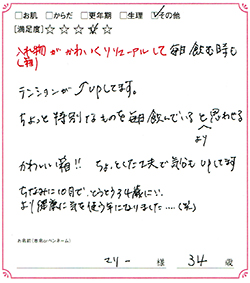 □お肌 □からだ □更年期 □生理 ☑その他
[満足度]☆☆☆☆☆
入れ物がかわいくリニューアルして毎日飲む時も
(箱)
テンションが↑UPしてます。
ちょっと特別なものを毎日飲んでいると思わせる
より
かわいい箱!! ちょっとした工夫で気分もUPします
ちなみに10日で、とうとう34歳に…
より健康に気を使う年になりました....(笑)
お名前(本名orペンネーム)
マリー 様 34 歳